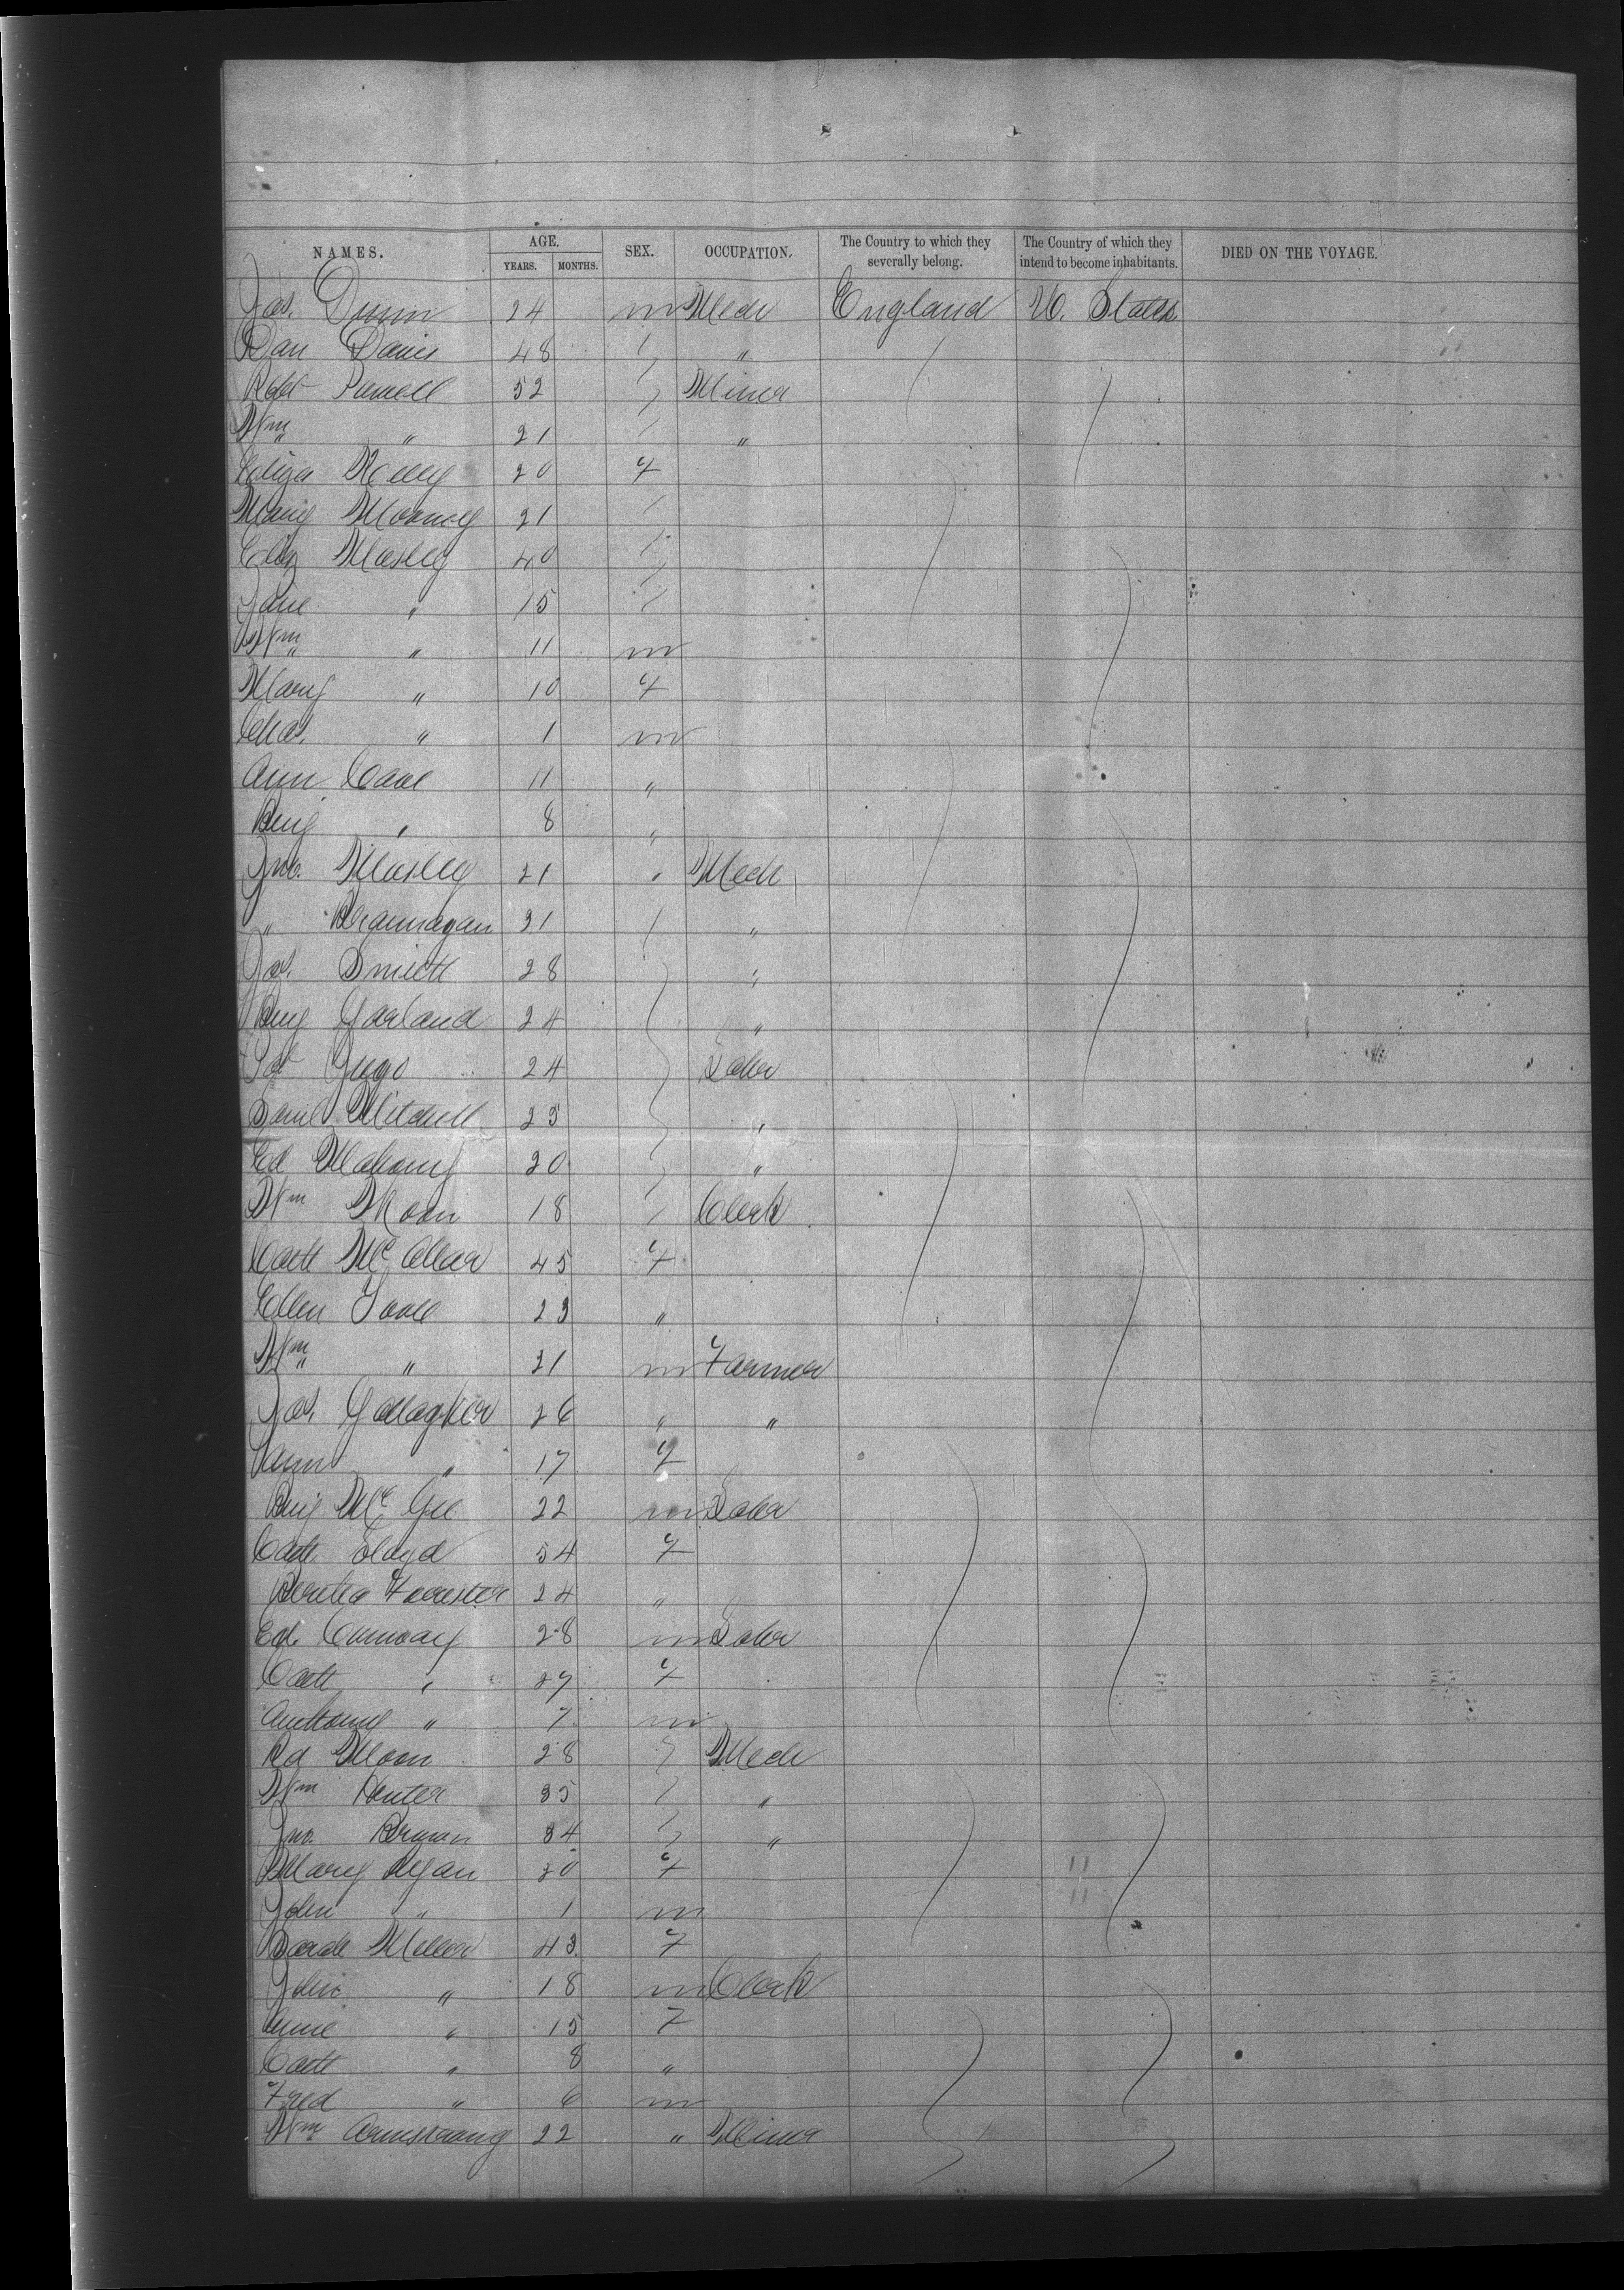 NAMES. AGE. YEARS. MONTHS. SEX. OCCUPATION. The Country to which they severally belong. The Country of which they intend to become inhabitants. DIED ON THE VOYAGE.
Jas. Dunn 24 m Mech England U. States
Dan Davis 48 "
Robt Purcell 52 Miner
Wm " 21 "
Eliza Kelly 20 f
Mary Mooney 21
Eliz Mosley 40
Jane " 15
Wm " 11 m
Mary " 10 f
Chas. " 1 m
Ann Cave 11 "
Benj " 8 "
Jno. Mosley 21 " Mech
" Brannagan 21 "
Jos. Smith 28 "
Benj Garland 24 "
Pat 24 Labr
Saml Mitchell 25 "
Ed Mahony 20 "
Wm Moon 18 Clerk
Cath Mc 45 f
Ellen Toole 23 "
Wm " 21 m Farmer
Jas. Gallagher 26 " "
Ann " 17 f
Benj McGee 22 m Labr
Cath Lloyd 54 f
Forrester 24 "
Ed. Conway 28 m Labr
Cath " 27 f
Anthony " 7 m
Rd Moon 28 Mech
Wm Hunter 35 "
Jno. Brown 34 "
Mary Ryan 30 f
John " 1 m
Sarah Miller 43 f
John " 18 m Clerk
Anne " 15 f
Cath " 8 "
Fred " 6 m
Wm Armstrong 22 " Miner